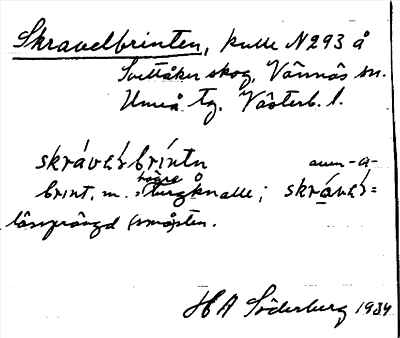 Skravelbrinten, kulle N293 å
Svettåker skog, Vännäs sn.
Umeå tg. Västerb. l.
skrávełbríntn
brint, m. högre bergknalle; skrável=
lössprängd småsten.
HA Söderberg 1934